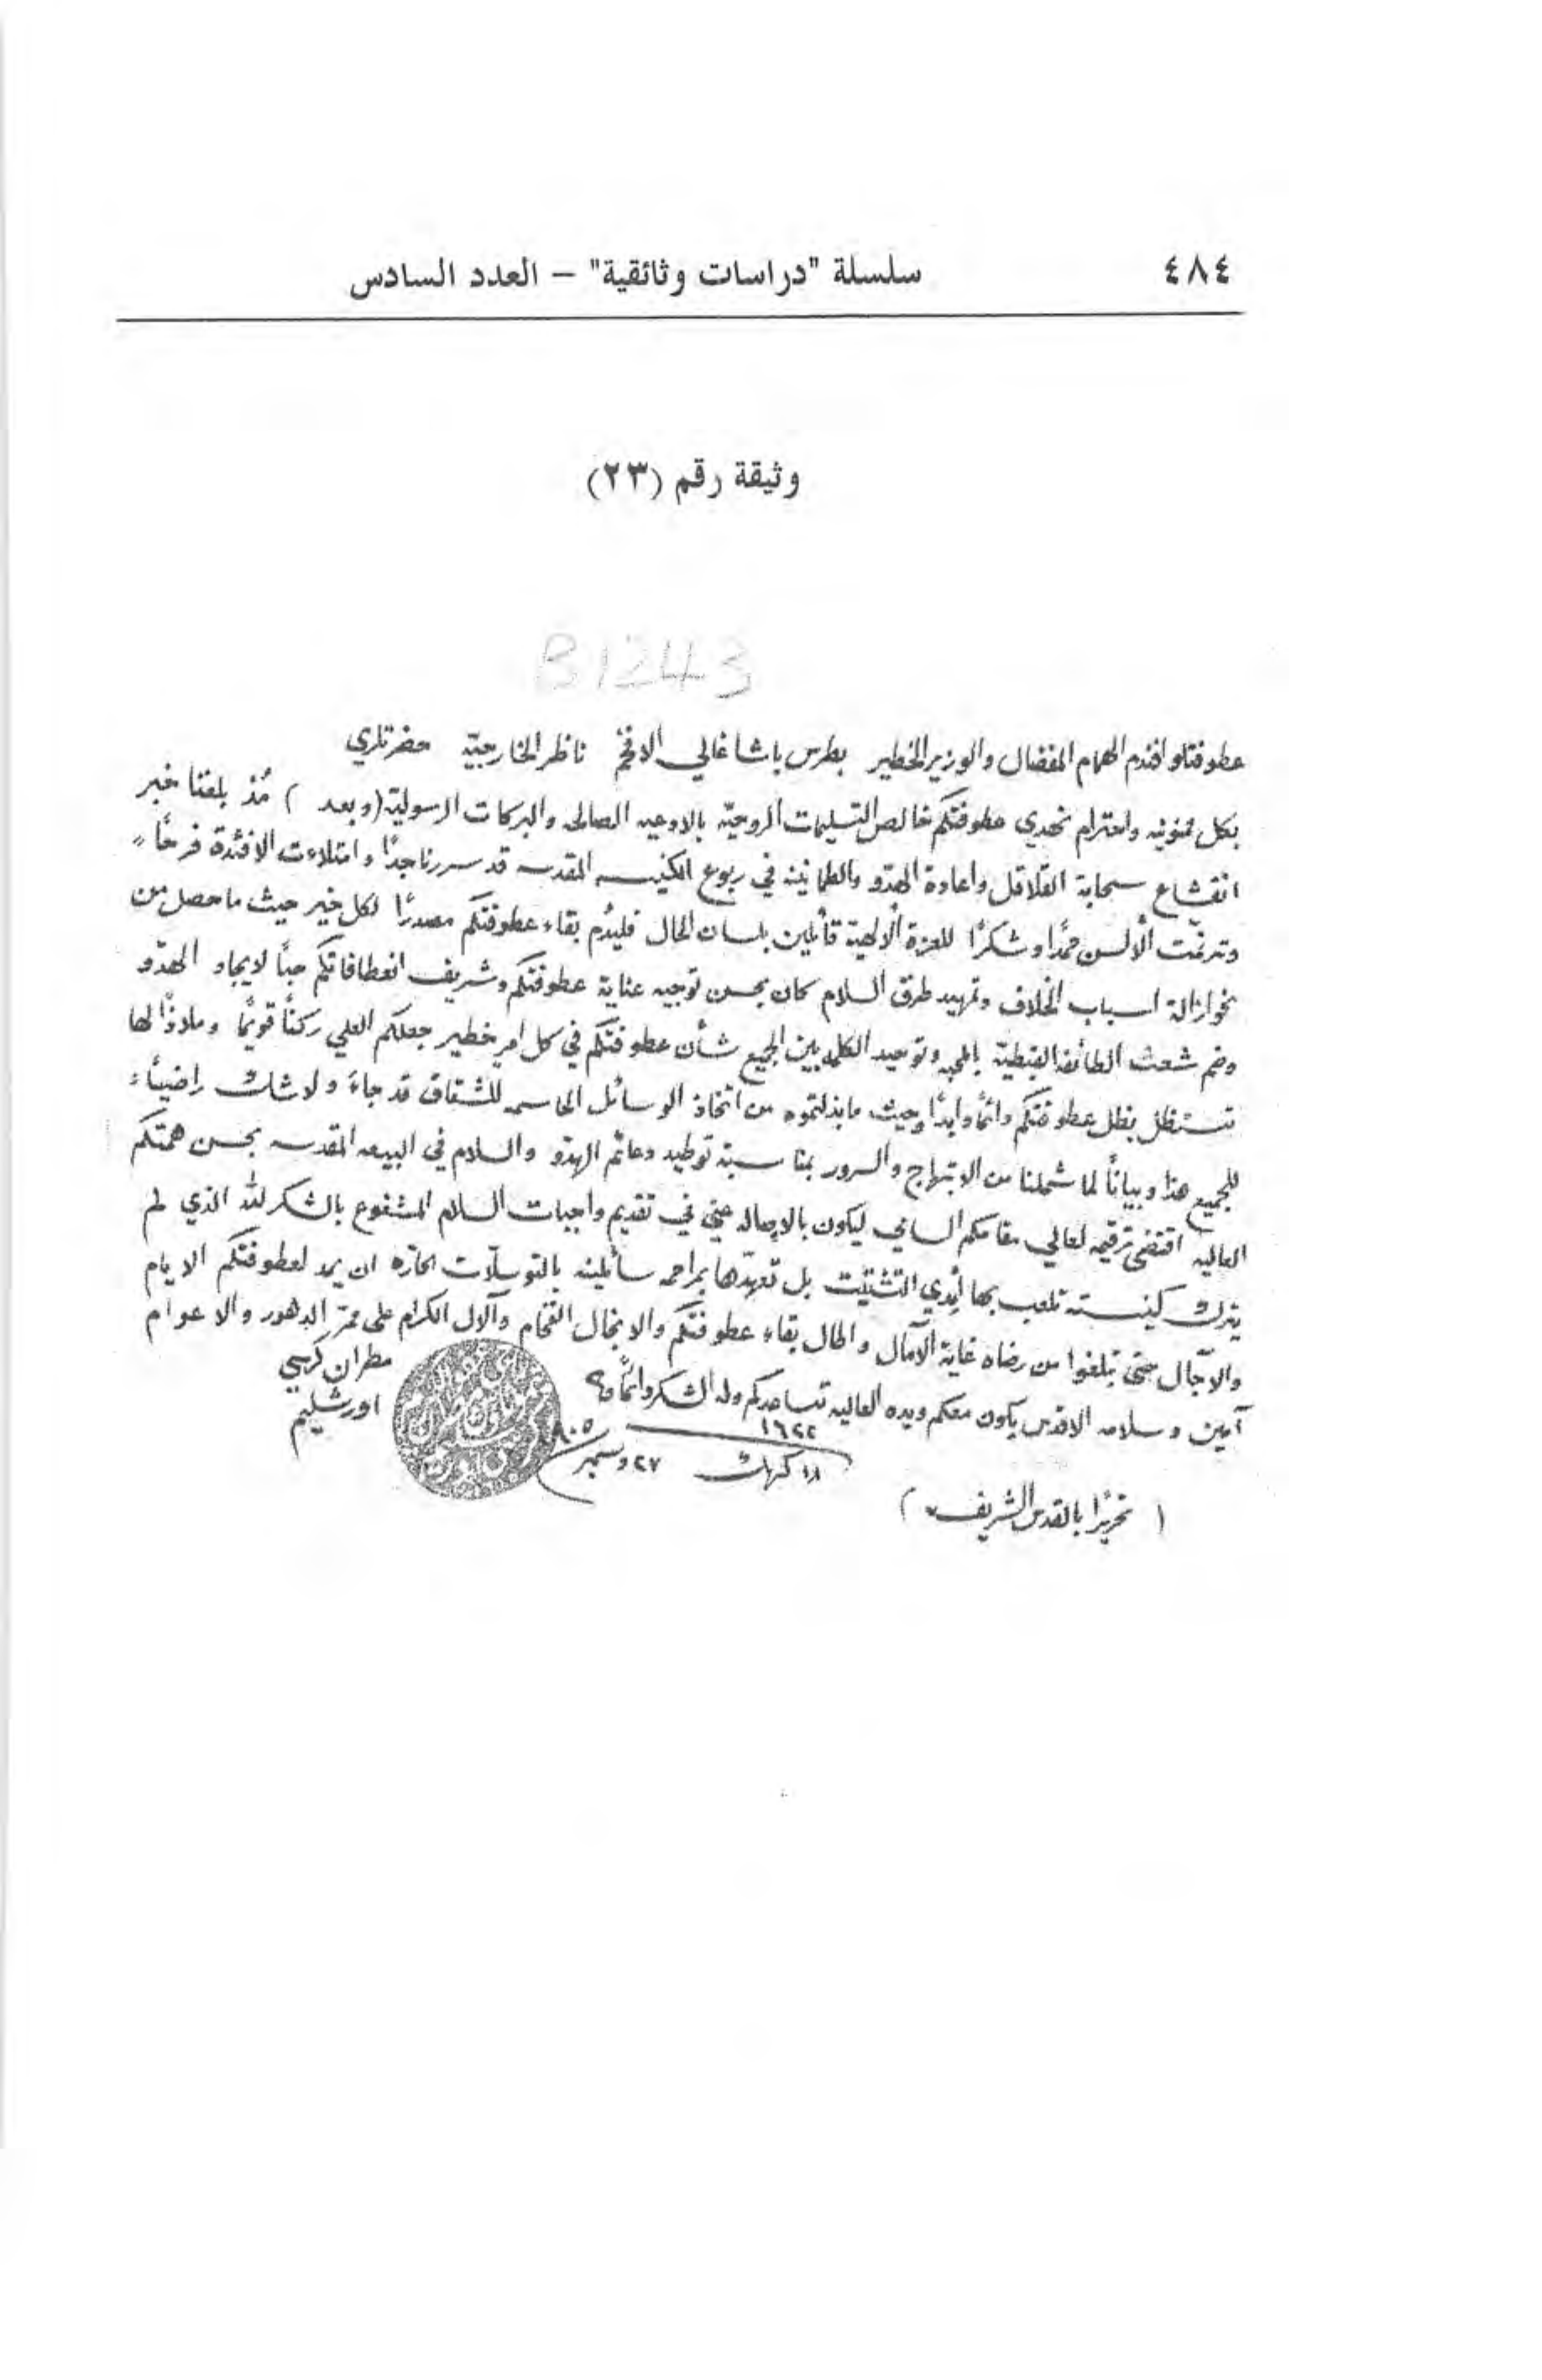 ٤٨٤ سلسلة "دراسات وثائقية" – العدد السادس
وثيقة رقم (٢٣)
B1243
عطوفتلو افندم الهمام المفضال والوزير الخطير بطرس باشا غالي الافخم ناظر الخارجيّة حضرتلري
بكل ممنونيه واحترام نهدي عطوفتكم خالص التسليمات الروحيّه بالادعيه الصالحه والبركات الرسولية (وبعد) مُذ بلغنا خبر
انقشاع سحابة القلاقل واعادة الهدّو والطمانينه في ربوع الكنيسه المقدسه قد سررنا جدًا وامتلاءت الافئدة فرحًا
وترنمّت الألسن حمدًا وشكرًا للعزة الألهية قائلين بلسان الحال فليدُم بقاء عطوفتكم مصدرًا لكل خير حيث ما حصل من
نحو ازالة اسباب الخلاف وتمهيد طرق السلام كان بحسن توجيه عناية عطوفتكم وشريف انعطافاتكم حبًا لايجاد الهدّو
وضم شعث الطائفه القبطيّه بالمحبه وتوحيد الكلمه بين الجميع شأن عطوفتكم في كل امرٍ خطير جعلكم العلي ركنًا قويمًا وملاذًا لها
تستظل بظل عطوفتكم دائمًا وابدًا وحيث ما بذلتموه من اتخاذ الوسائل الحاسمه للشقاق قد جاءَ ولا شك راضيًا
للجميع هذا وبيانًا لما شملنا من الابتهاج والسرور بمناسبة توطيد دعائم الهدّو والسلام في البيعه المقدسه بحسن همتكم
العاليه اقتضى ترقيمه لعالي مقامكم السامي ليكون بالاصاله عني في تقديم واجبات السلام المشفوع بالشكر لله الذي لم
يترك كنيسته تلعب بها أيدي التشتيت بل تعهدّها بمراحمه سائلينه بالتوسلّات الحارّه ان يمد لعطوفتكم الايام
والآجال حتى تبلغوا من رضاه غاية الآمال واطال بقاء عطوفتكم والانجال الفخام وآلال الكرام على ممّر الدهور والاعوام
آمين وسلامه الاقدس يكون معكم ويده العاليه تساعدكم وله الشكر دائمًا
مطران كرسي
اورشليم
١٦٢٢
١٨ كيهك ٢٧ دسمبر
(تحريرًا بالقدس الشريف)